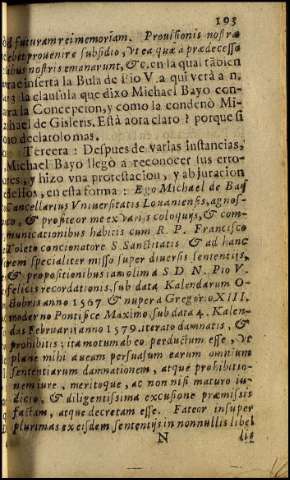 103
futuram rei memoriam. Prouisionis nostræ
debet prouenire subsidio, vt ea quæ a prædecesso
ribus nostris emanarunt, &c. en la qual tãbien
trae inserta la Bula de Pio V. a qui verà a n.
la clausula que dixo Michael Bayo con-
tra la Concepcion, y como la condenò Mi-
chael de Gisleris. Està aora claro? porque si
no declarolo mas.
Tercera: Despues de varias instancias,
Michael Bayo llegò a reconocer sus erro-
res, y hizo vna protestacion, y abjuracion
dellos, en esta forma: Ego Michael de Bay
Cancellarius Vniuersitatis Louaniensis, agnos-
co, & profiteor me ex varijs coloquijs, & com-
municationibus habitis cum R. P. Francisco
Toleto concionatore S. Sanctitatis & ad hanc
rem specialiter misso super diuersis sententijs,
& propositionibus iam olim a S. D. N. Pio V.
felicis recordationis. sub data Kalendarum O-
ctobris anno 1567 & nuper a Gregorio XIII.
moderno Pontifice Maximo. sub data 4. Kalen-
das Februarij anno 1579. iterato damnatis, &
prohibitis; ita motum ab eo perductum esse, vt
plane mihi aueam persuasum earum omnium
sententiarum damnationem, atque prohibitio-
nem iure, meritoque, ac non nisi maturo iu-
dicio, & diligentissima excusione præmissis
factam, atque decretam esse. Fateor insuper
plurimas ex eisdem sententijs in nonnullis libel
N
lis